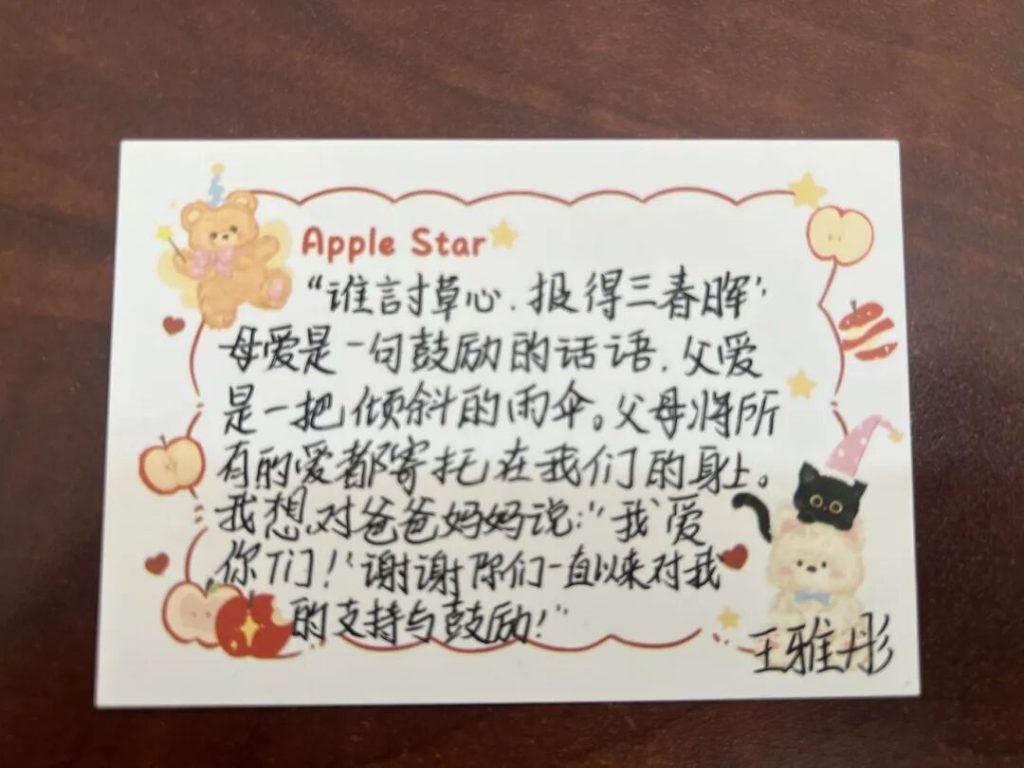 Apple Star
“谁言寸草心.报得三春晖”.
母爱是一句鼓励的话语.父爱
是一把倾斜的雨伞。父母将所
有的爱都寄托在我们的身上。
我想对爸爸妈妈说:“我爱
你们!‘谢谢你们一直以来对我
的支持与鼓励!”
王雅彤